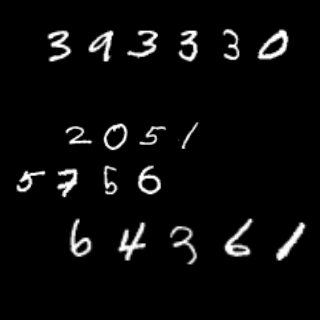 393330
2051
5756
64361